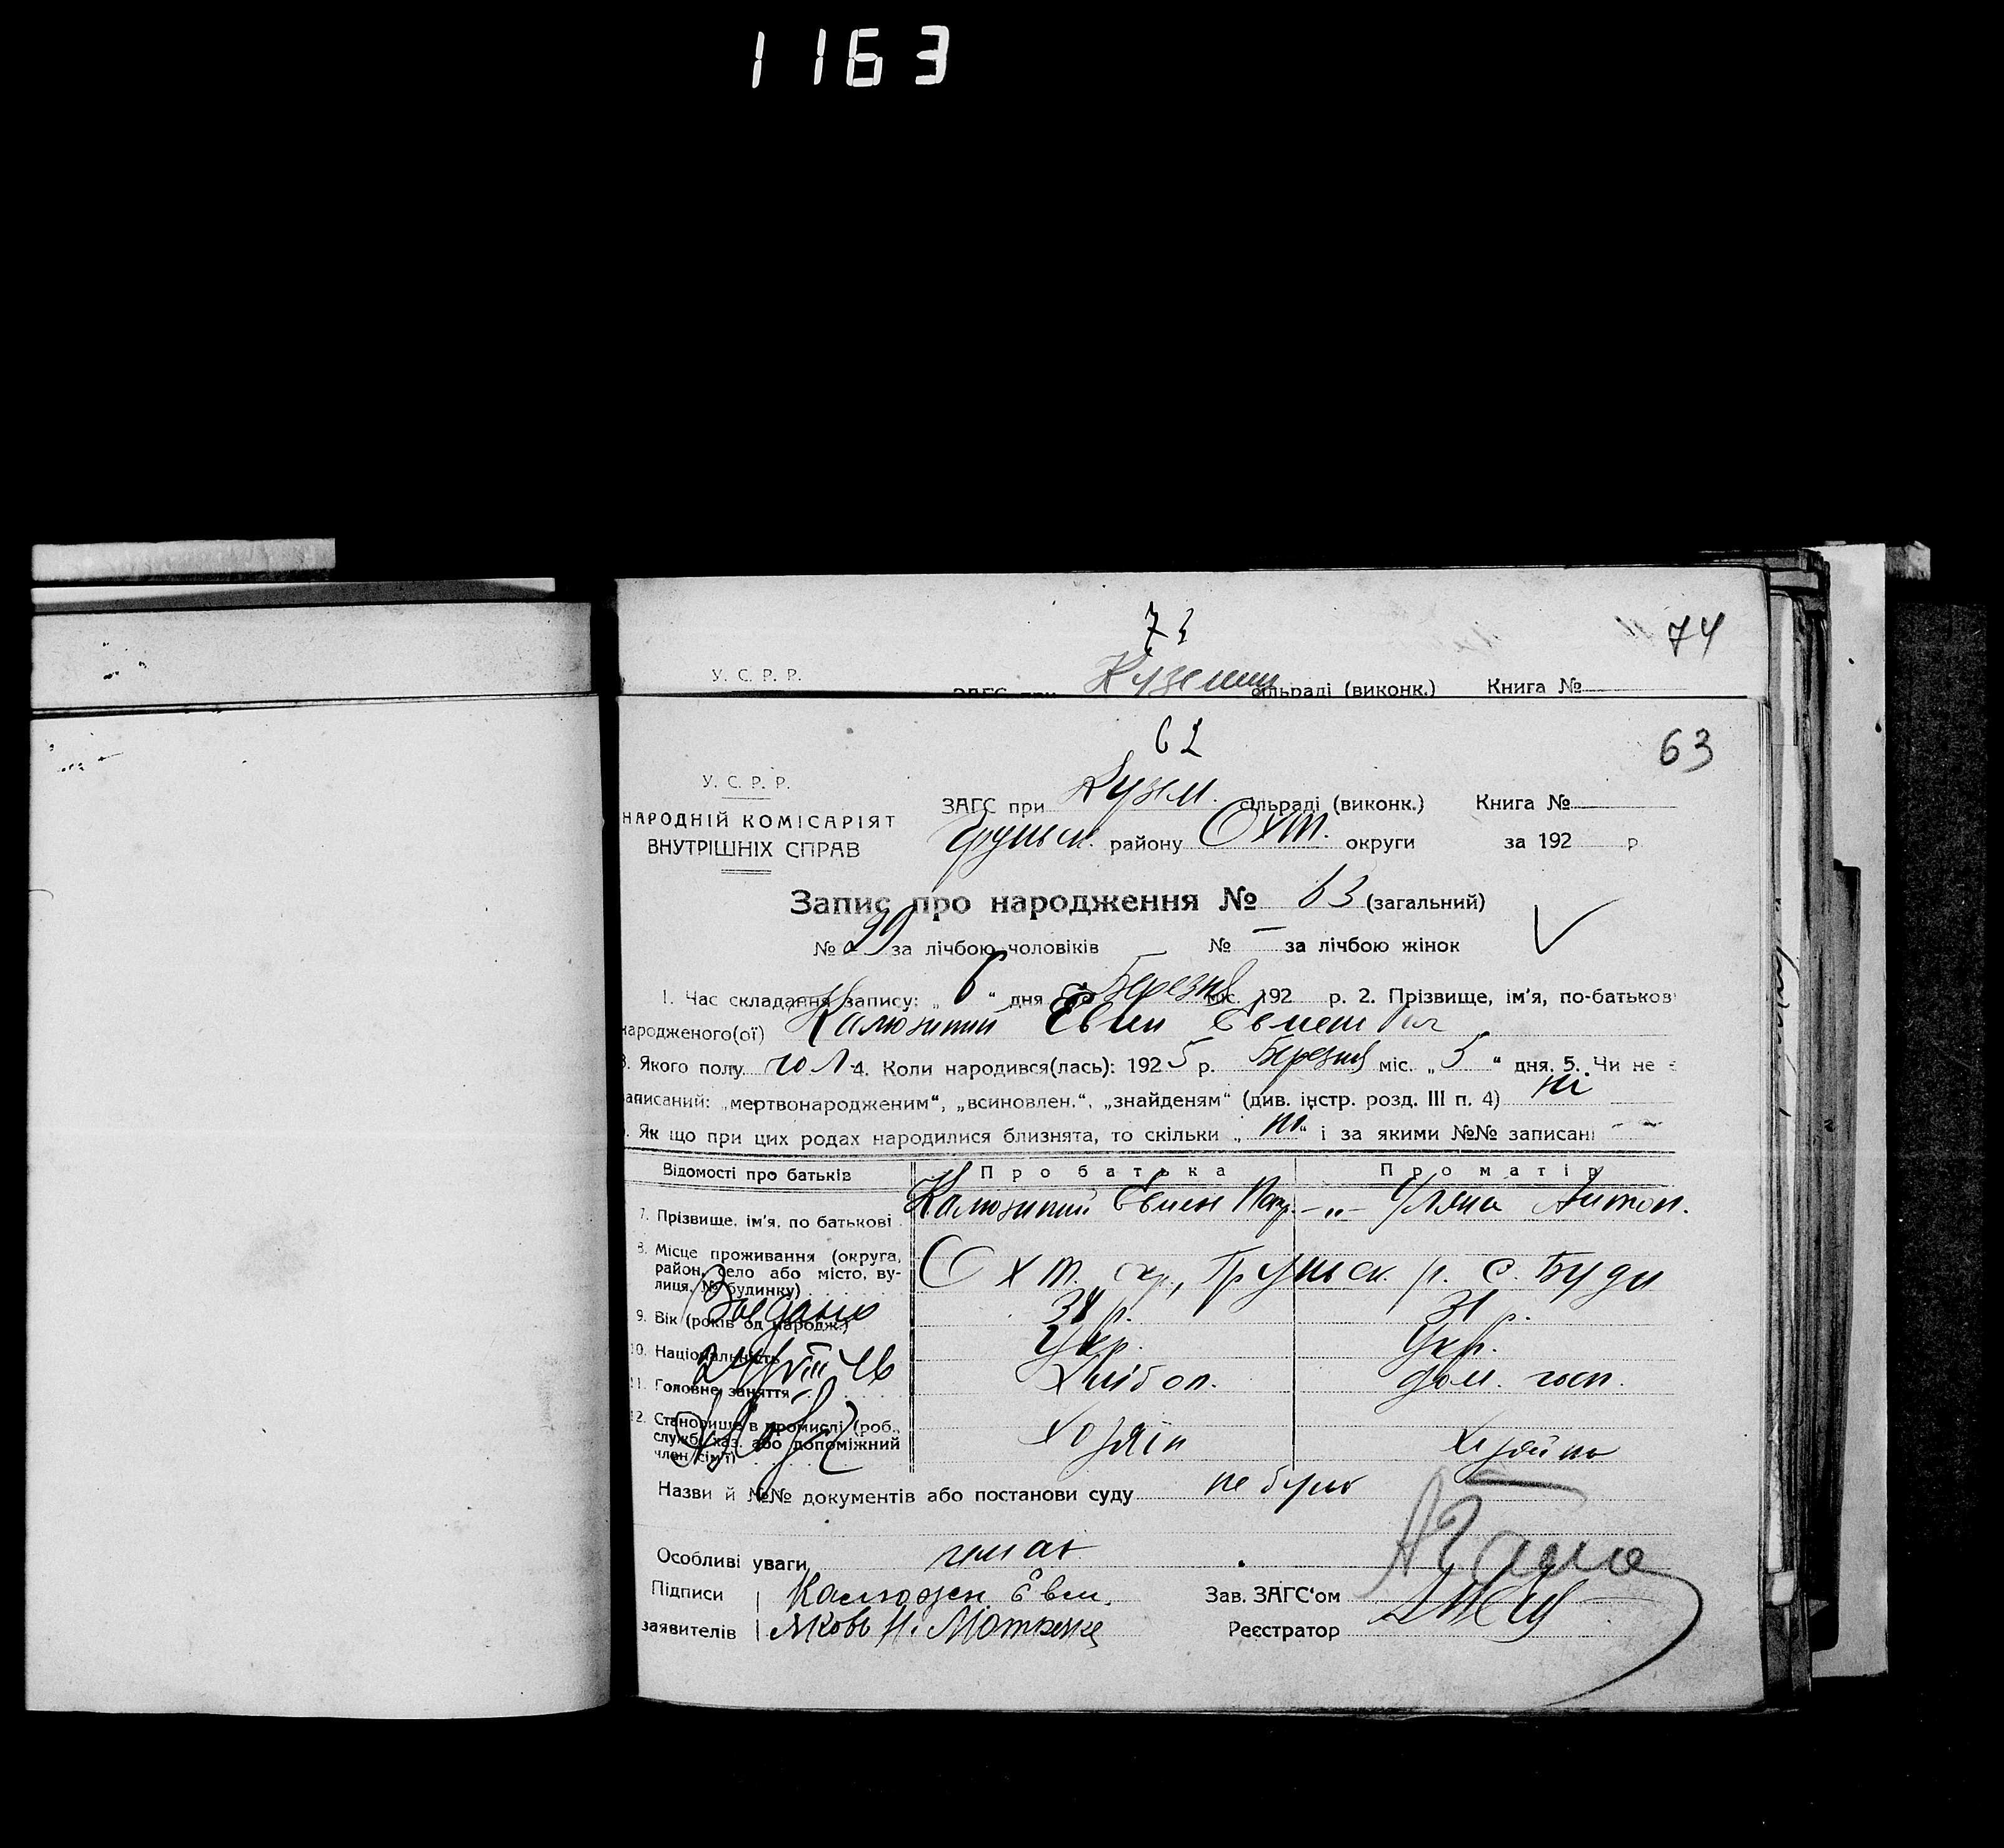 1163
73
74
У. С. Р. Р.
сільраді (виконк.) Книга №
62
63
У. С. Р. Р.
НАРОДНІЙ КОМІСАРІЯТ
ВНУТРІШНІХ СПРАВ
ЗАГС при Кузем. сільраді (виконк.) Книга №
Груньск. району Охт. округи за 192 р
Запис про народження № 63 (загальний)
№ за лічбою чоловіків № — за лічбою жінок
1. Час складання запису: „ 6 “ дня Березня міс. 192 р. 2. Прізвище, ім'я, по-батьков
народженого(ої) Євмен
3. Якого полу чол. 4. Коли народився(лась): 1925 р. Березня міс. „ 5 “ дня. 5. Чи не є
записаний: „мертвонародженим“, „всиновлен.“, „знайденям“ (див. інстр. розд. III п. 4) ні
Як що при цих родах народилися близнята, то скільки „ ні “ і за якими №№ записані
Відомості про батьків Про батька Про матір
7. Прізвище, ім'я, по батькові Євмен — „ — Уляна Антон.
8. Місце проживання (округа,
район, село або місто, ву-
лиця, № будинку) Охт. окр., Груньск. р. с. Буди
9. Вік (років од народж.) 31 р.
10. Національність Укр. Укр.
11. Головне заняття Хлібоп. дом. госп.
12. Становище в промислі (роб.,
служб., хаз. або допоміжний
член сім'ї) хозяїн хозяйка
Назви й №№ документів або постанови суду не було
Особливі уваги немає
Підписи Євм. Зав. ЗАГС'ом
заявителів Яковь Н. Реєстратор